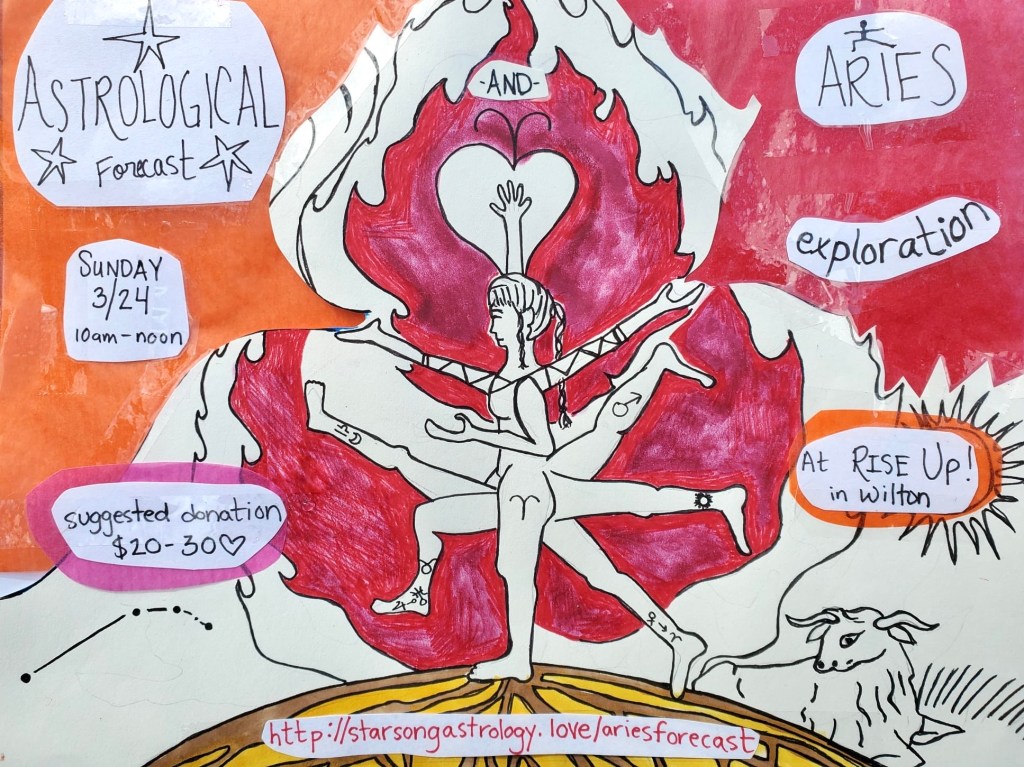 ASTROLOGICAL
Forecast
-AND-
ARIES
exploration
SUNDAY
3/24
10am-noon
At RISE UP!
in Wilton
suggested donation
$20-30♡
http://starsongastrology.love/ariesforecast